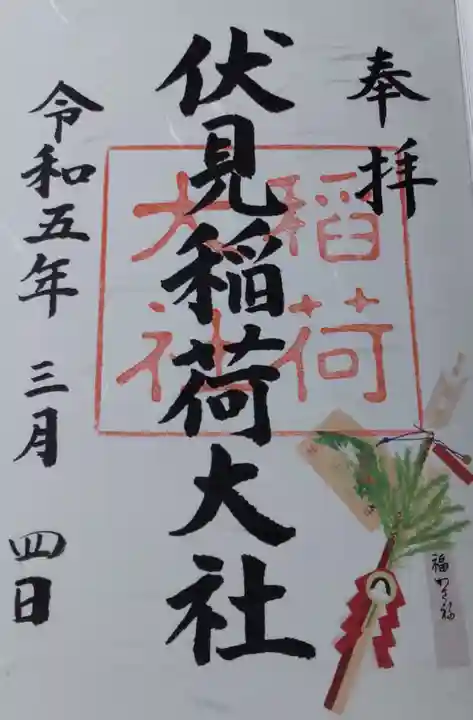 奉拝
伏見稲荷大社
稲荷
大社
令和五年 三月 四日